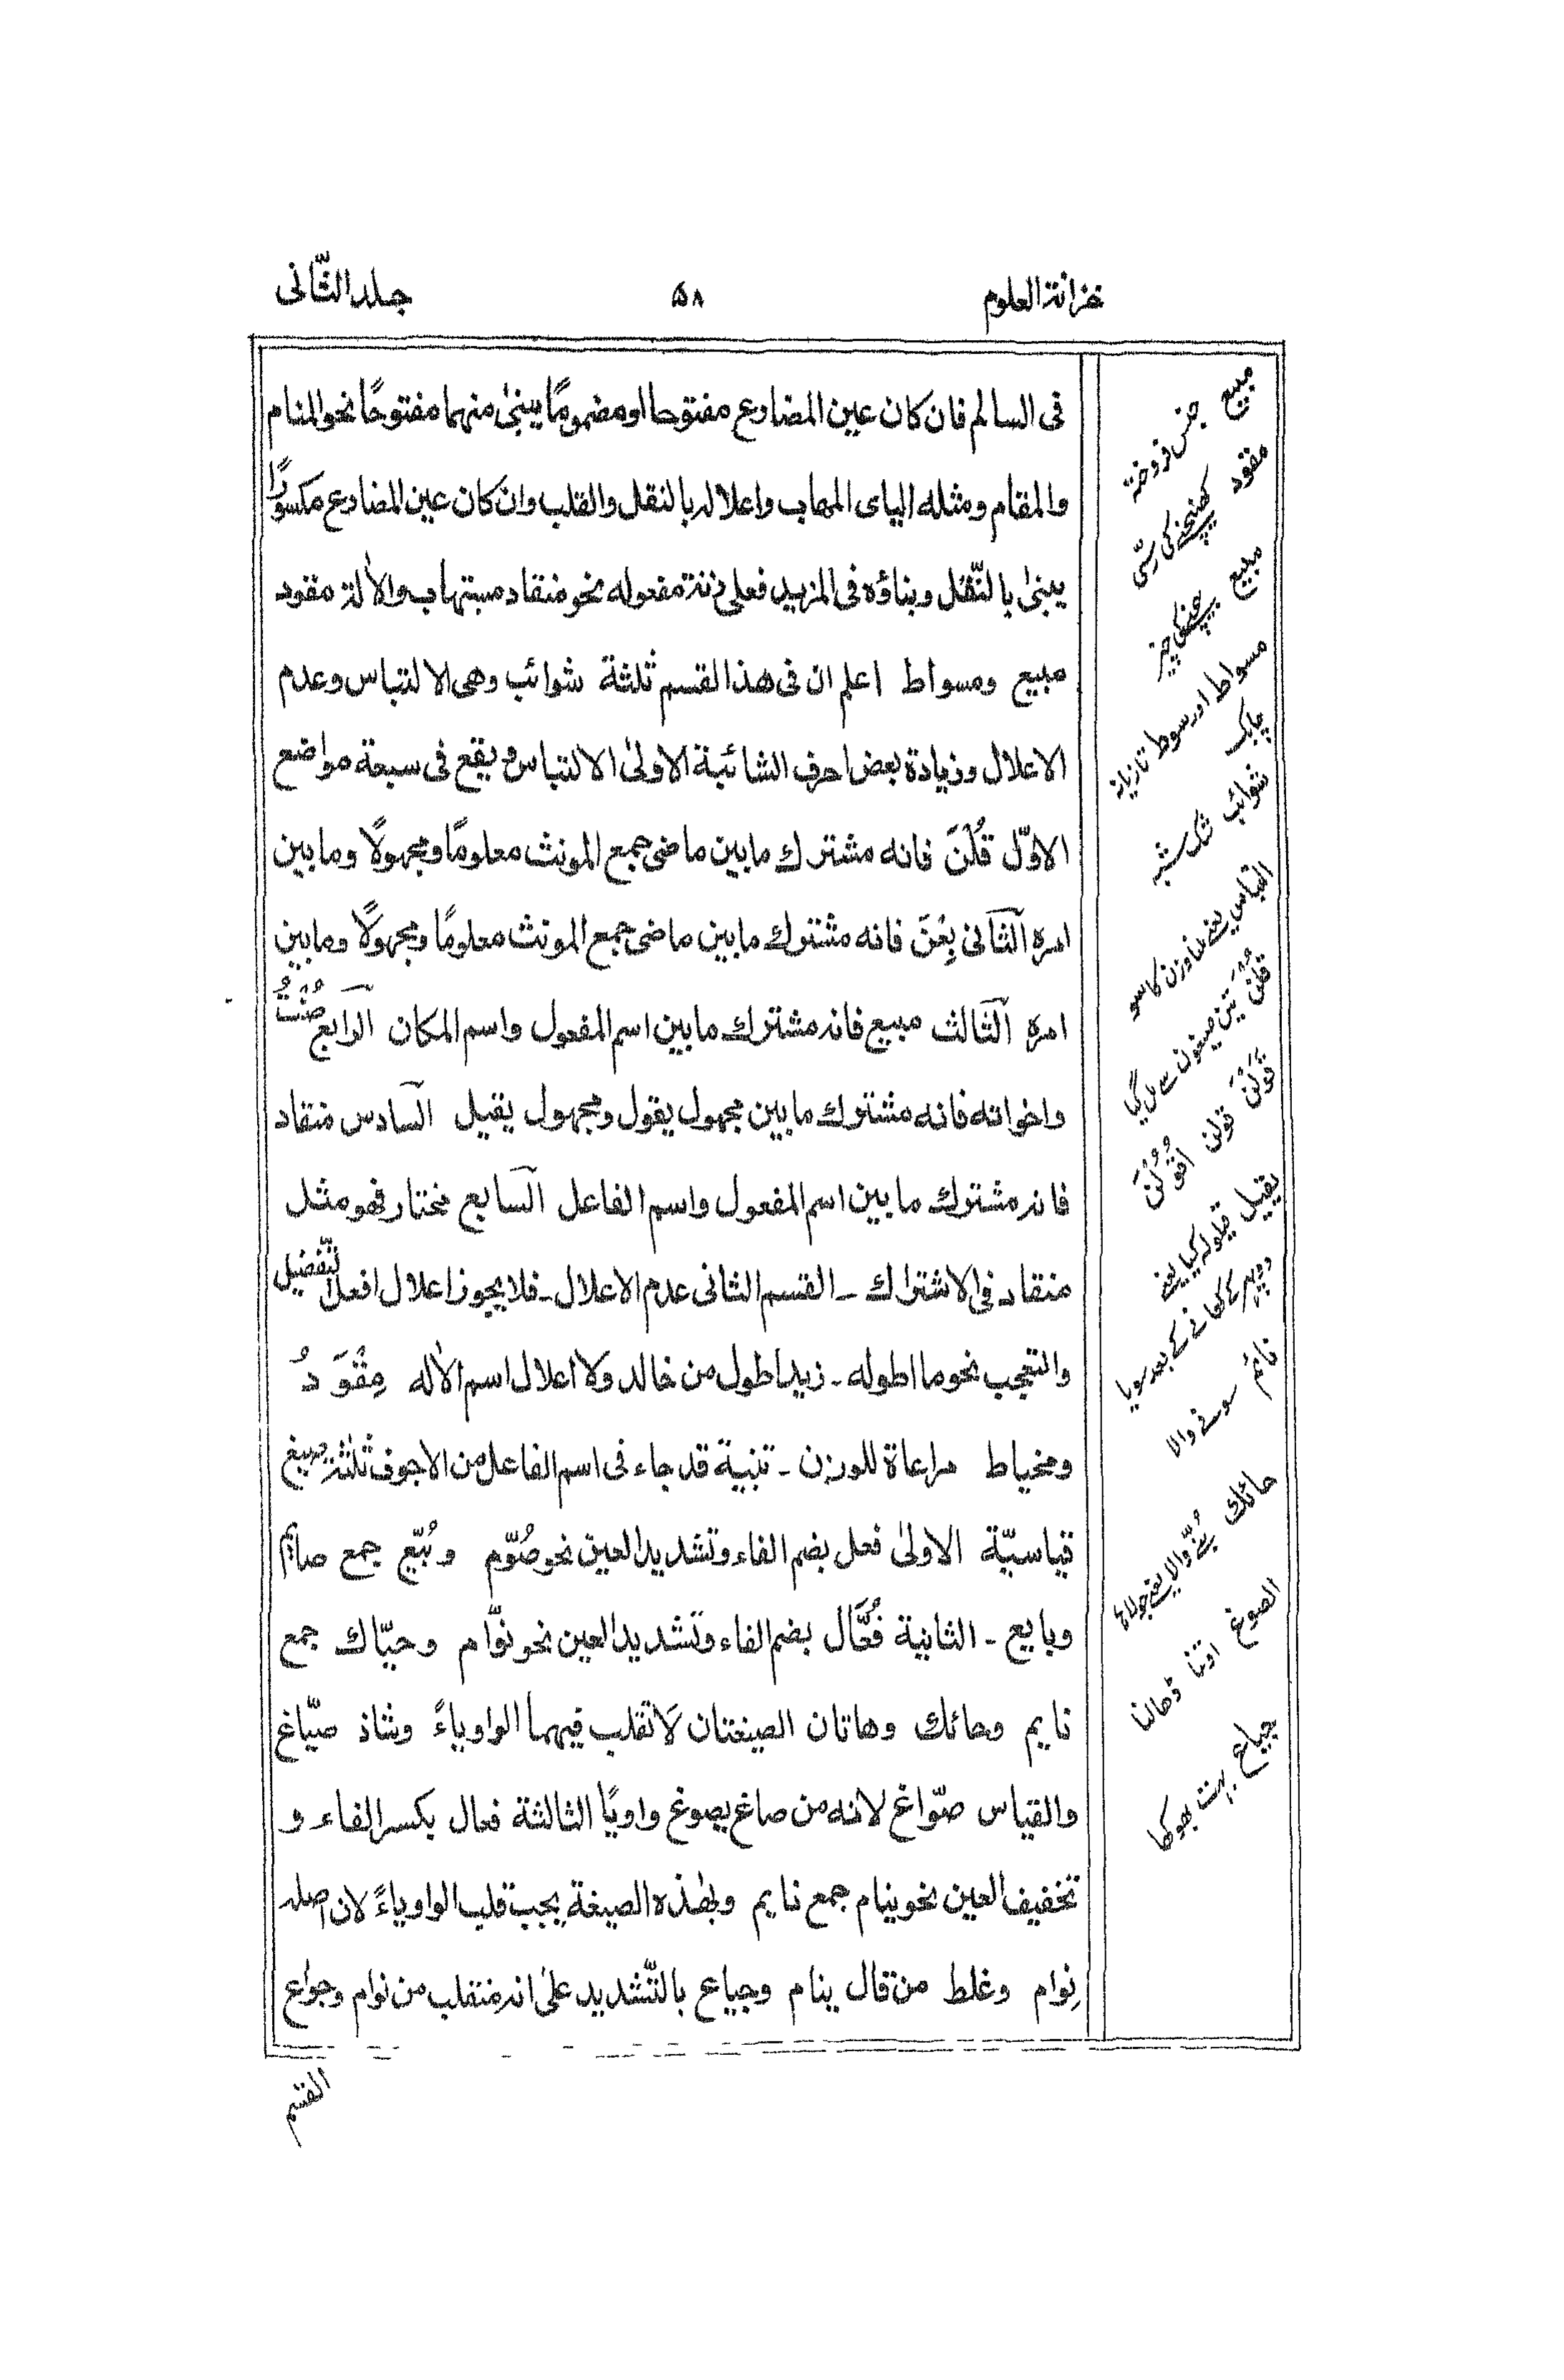 خزانة العلوم ۵۸ جلد الثّانی
فی السالم فان کان عین المضارع مفتوحا او مضموماً یبنیٰ منهما مفتوحًا نحو المنام
والمقام ومثله الیای المهاب واعلاله بالنقل والقلب وان کان عین المضارع مکسورًا
یبنیٰ بالنّقل وبناؤه فی المزید فعلی زنة مفعوله نحو منقاد مبتهاب والاٰلة مقود
مبیع ومسواط اعلم ان فی هذا القسم ثلثة شوائب وهی الالتباس وعدم
الاعلال وزیادة بعض احرف الشائبة الاولیٰ الالتباس ویقع فی سبعة مواضع
الاوّل قُلْنَ فانه مشترك مابین ماضی جمع المونث معلومًا ومجهولًا ومابین
امره الثانی بِعْنَ فانه مشترك مابین ماضی جمع المونث معلومًا ومجهولًا ومابین
امره الثالث مبیع فانه مشترك مابین اسم المفعول واسم المکان الرابع صُنْتُ
واخواته فانه مشترك مابین مجهول یقول ومجهول یقیل السادس منقاد
فانه مشترك مابین اسم المفعول واسم الفاعل السابع مختار فهو مثل
منقاد فی الاشتراك ـ القسم الثانی عدم الاعلال ـ فلا یجوز اعلال افعل التّفضیل
والتعجب نحو ما اطوله ـ زید اطول من خالد ولا اعلال اسم الاٰله مِقْوَدُ
ومخیاط مراعاة للوزن ـ تنبیة قد جاء فی اسم الفاعل من الاجوف ثلٰثة صیغ
قیاسیّة الاولیٰ فعل بضم الفاء وتشدید العین نحو صُوّم وبُیّع جمع صایم
وبایع ـ الثانیة فُعَّال بضم الفاء وتشدید العین نحو نوّام وحیّاك جمع
نایم وحائك وهاتان الصیغتان لاتقلب فیهما الواو یاءً وشاذ صیّاغ
والقیاس صوّاغ لانه من صاغ یصوغ واویًا الثالثة فعال بکسر الفاء و
تخفیف العین نحو ینام جمع نایم وبهٰذه الصیغة یجب قلب الواو یاءً لان اصله
نِوام وغلط من قال ینام وجیاع بالتّشدید علیٰ انه منقلب من نوام وجواع
القسم
مبیع جنس فروخته
مقود کھینچنے کی رسّی
مبیع بیچنے کی چیز
مسواط اور سوط تازیانہ
چابک
شوائب شک شبہ
التباس یعنے
قُلْنَ تین صیغوں سے مل گیا
قَوَلْنَ قولن اقْوُلْنَ
یقیل قیلولہ کیا یعنے
دوپہر کے کھانے کے بعد سویا
نائم سونے والا
حائك بُننے والا یعنے جولاہا
الصوغ ڈھالنا
جیاع بہت بھوکھا